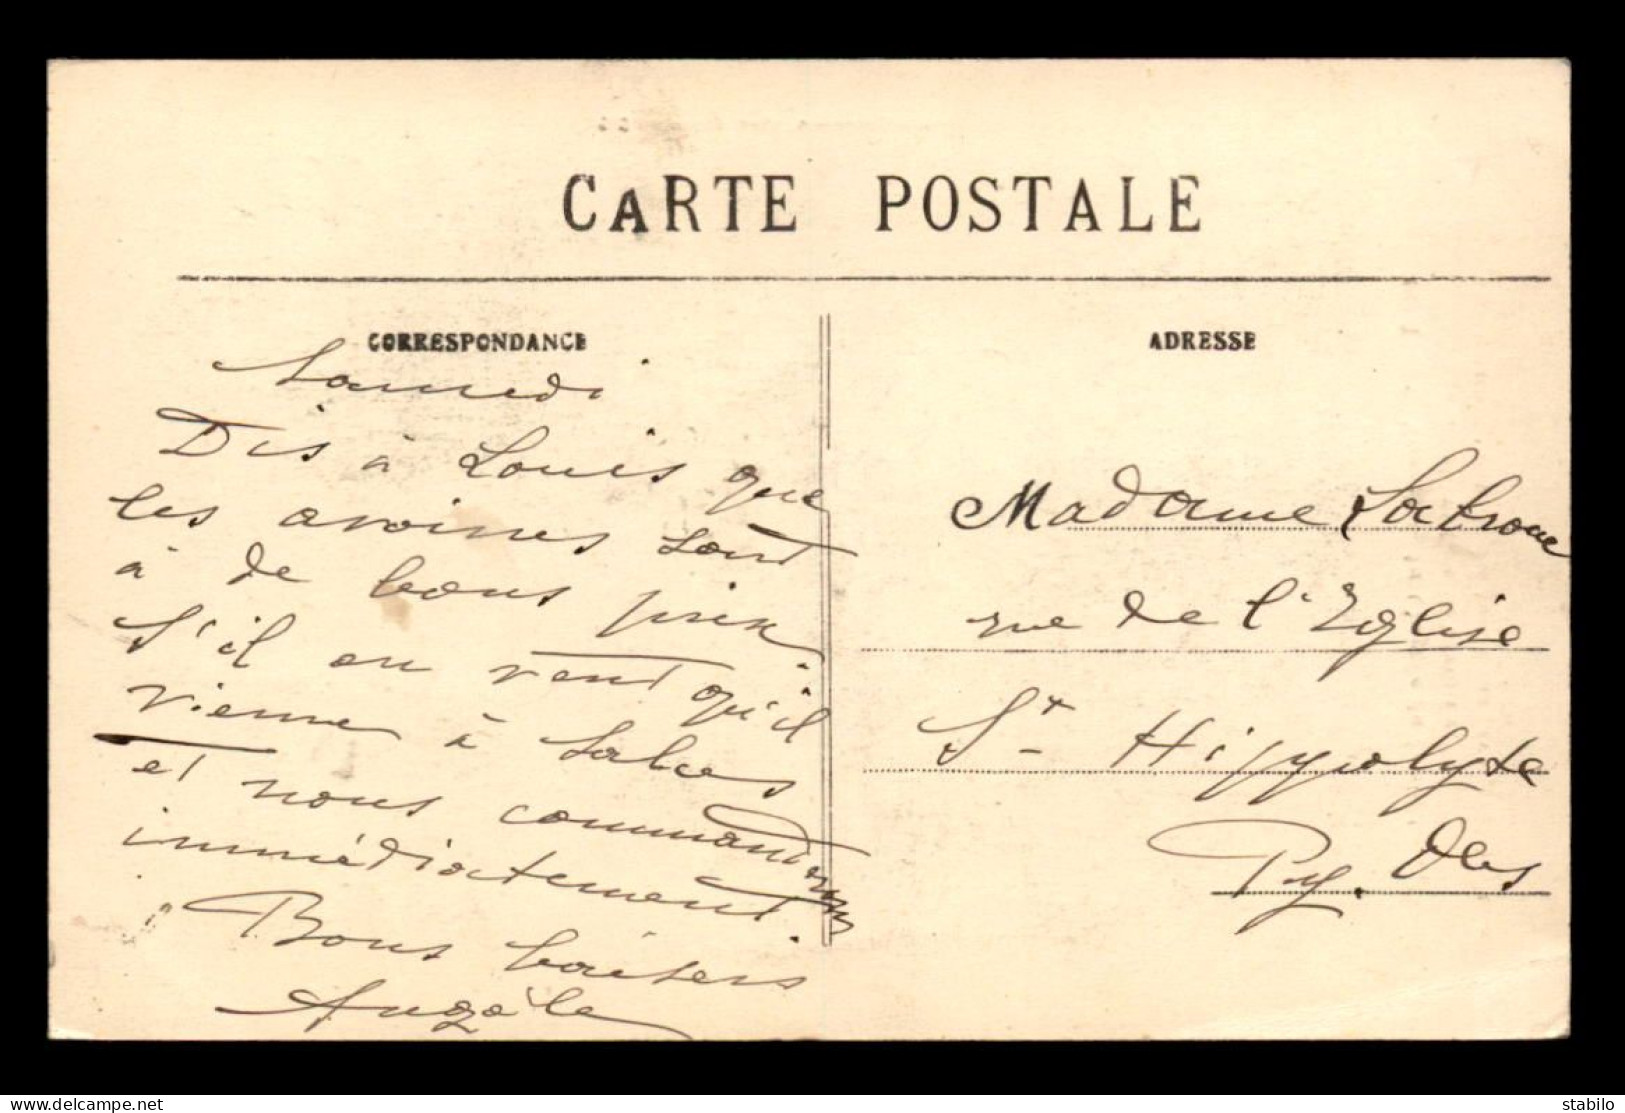 CARTE POSTALE
CORRESPONDANCE
ADRESSE
Samedi
Dis à Louis que
les avoines sont
à de bons prix.
S'il en veut qu'il
vienne à Salces
et nous commanderons
immédiatement.
Bons baisers
Angèle
Madame
rue de l'Eglise
St Hippolyte
Py. Oles
delcampe.net
stabilo